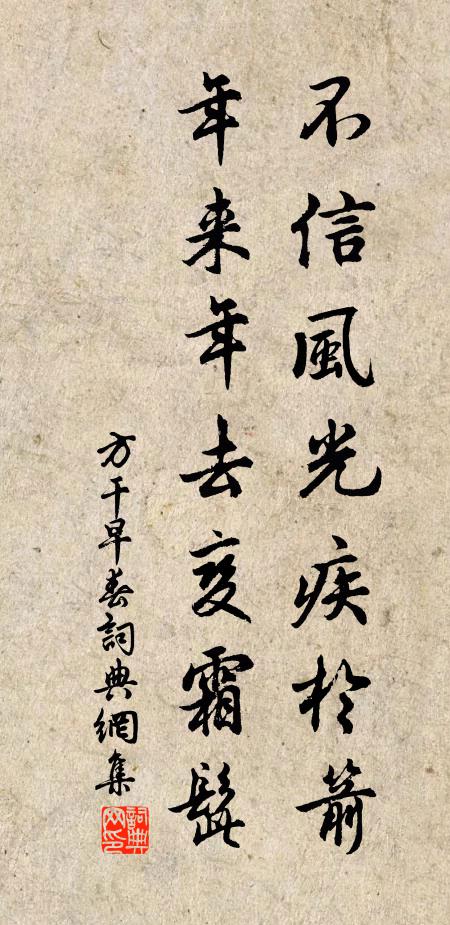 不信風光疾於箭
年来年去变霜髭
方干早春詞典網集
詞典网印